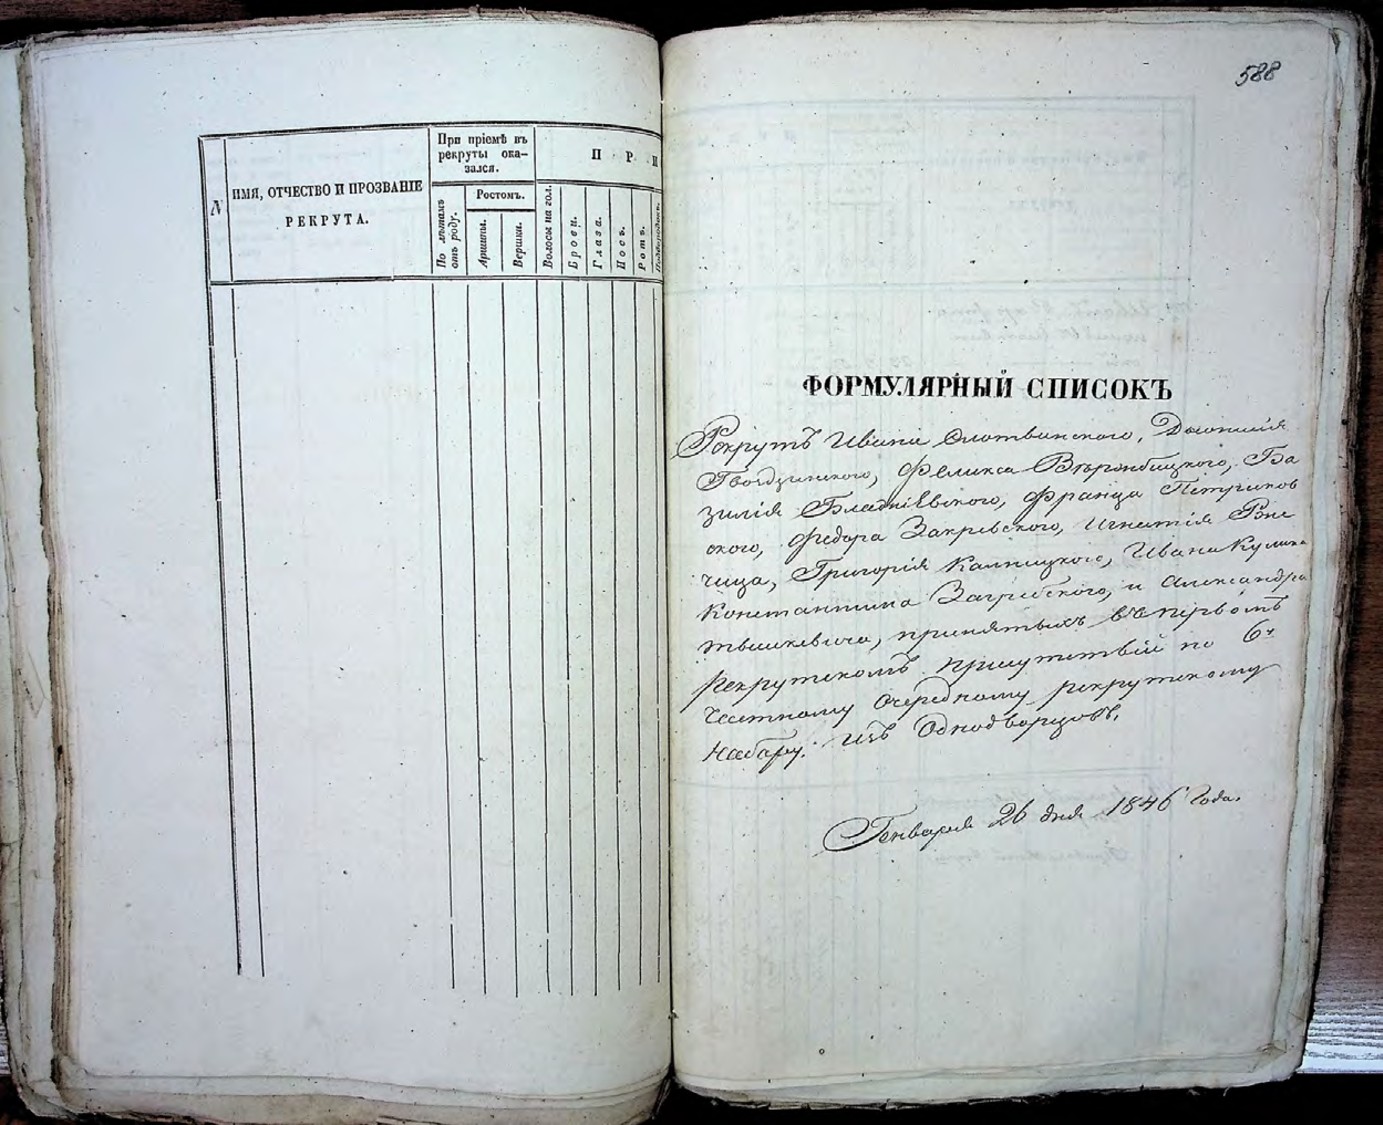 №
ИМЯ, ОТЧЕСТВО И ПРОЗВАНІЕ
РЕКРУТА.
При пріемѣ въ
рекруты ока-
зался.
По лѣтамъ
отъ роду.
Ростомъ.
Аршины.
Вершки.
П Р И
Волосы на гол.
Брови.
Глаза.
Носъ.
Ротъ.
Подбородокъ.
588
ФОРМУЛЯРНЫЙ СПИСОКЪ
Рекрутъ Ивана Слотвинского,
Гвоздзинского, Феликса Бѣронбицкого, Ба
зилія Францa Петрунов
ского, Федора Закревского, Игнатія
Григорія Ивана Кулика
Константина Загребского, и Александра
принятыхъ въ первомъ
Рекрутскомъ присутствіи по 6й
частному очередному рекрутскому
набору. изъ Однодворцовъ.
Генваря 26 дня 1846 года.